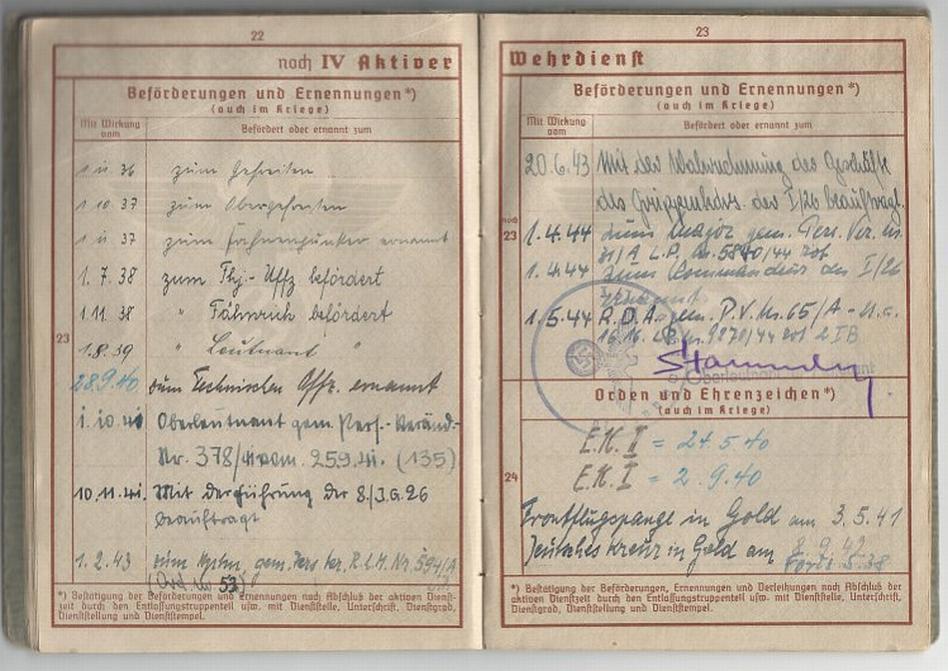 22
noch IV Aktiver
Beförderungen und Ernennungen*)
(auch im Kriege)
Mit Wirkung vom
Befördert oder ernannt zum
36 zum Gefreiten
1 10 37 zum Obergefreiten
37 zum Fahnenjunker ernannt
1. 7. 38 zum Fhj.-Uffz befördert
1. 11. 38 " Fähnrich befördert
23
1. 8. 39 " Leutnant "
28.9.40 zum Technischen Offz. ernannt
1. 10. Oberleutnant gem. Pers.-Veränd.-
Nr. 378/41 vom 25.9.41. (135)
10. 11. 41. Mit der Führung der 8./J.G. 26
beauftragt
1. 2. 43 zum Hptm. gem. R.L.M. Nr. 594/A
53)
*) Bestätigung der Beförderungen und Ernennungen nach Abschluß der aktiven Dienst-
zeit durch den Entlassungstruppenteil usw. mit Dienststelle, Unterschrift, Dienstgrad,
Dienststellung und Dienststempel.
23
Wehrdienst
Beförderungen und Ernennungen*)
(auch im Kriege)
Mit Wirkung vom
Befördert oder ernannt zum
20. 6. 43 Mit der Wahrnehmung der Geschäfte
des Gruppenkdrs. der I/26 beauftragt.
noch
23
1. 4. 44 zum Major gem. Pers. Ver. Nr.
31/A L.P. Nr. 5840/44
1. 4. 44 zum Kommandeur der I/26
ernannt
1. 5. 44 R.D.A. gem. P.V. Nr. 65/A
Nr. 9270/44
Orden und Ehrenzeichen*)
(auch im Kriege)
E.K. II = 24. 5. 40
24
E.K. I = 2. 9. 40
Frontflugspange in Gold am 3. 5. 41
Deutsches Kreuz in Gold am
*) Bestätigung der Beförderungen, Ernennungen und Verleihungen nach Abschluß der
aktiven Dienstzeit durch den Entlassungstruppenteil usw. mit Dienststelle, Unterschrift,
Dienstgrad, Dienststellung und Dienststempel.